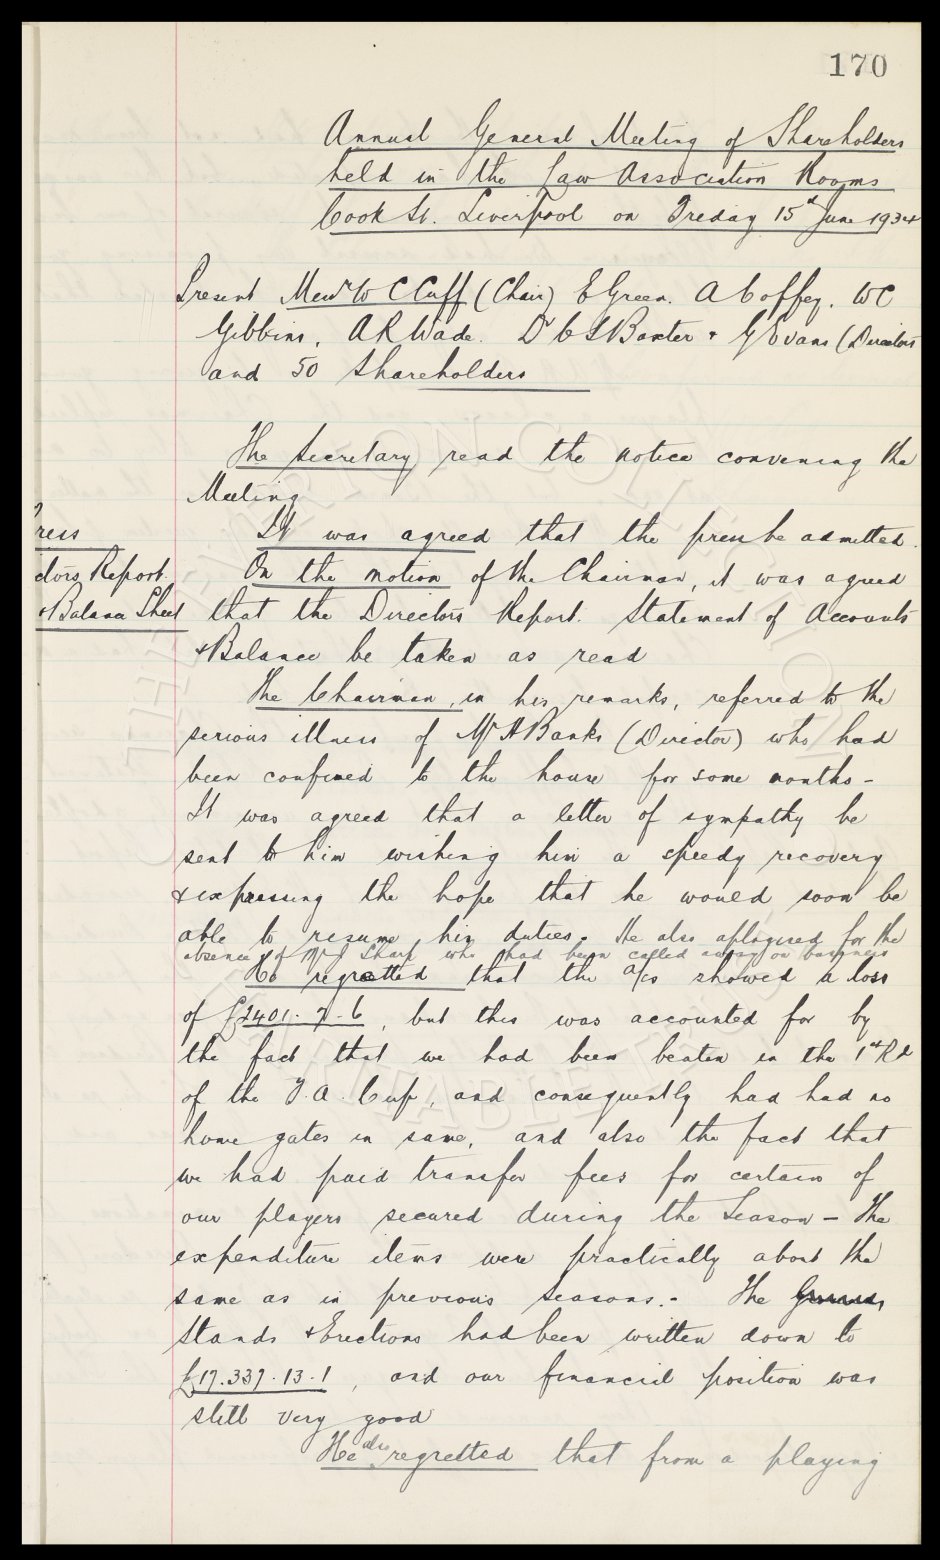 170
Annual General Meeting of Shareholders
held in the Law Association Rooms
Cook St. Liverpool on Friday 15th June 1934
Present Messrs W C Cuff (Chair) E Green. A Coffey. W C
Gibbins, A R Wade. Dr C S Baxter & G Evans (Directors
and 50 Shareholders
The Secretary read the notice convening the
Meeting
Press
It was agreed that the press be admitted.
ctors Report.
On the motion of the Chairman, it was agreed
& Balance Sheet
that the Directors Report. Statement of Accounts
& Balance be taken as read
The Chairman, in his remarks, referred to the
serious illness of Mr A Banks (Director) who had
been confined to the house for some months -
It was agreed that a letter of sympathy be
sent to him wishing him a speedy recovery
& expressing the hope that he would soon be
able to resume his duties. He also aplogised for the
absence of Mr J Sharp who had been called away on business
He regretted that the a/cs showed a loss
of £2401. 7. 6, but this was accounted for by
the fact that we had been beaten in the 1st Rd
of the F.A. Cup, and consequently had had no
home gates in same, and also the fact that
we had paid transfer fees for certain of
our players secured during the Season - The
expenditure items were practically about the
same as in previous seasons. - The
Stands & Erections had been written down to
£17.337. 13. 1, and our financial position was
still very good
He also regretted that from a playing